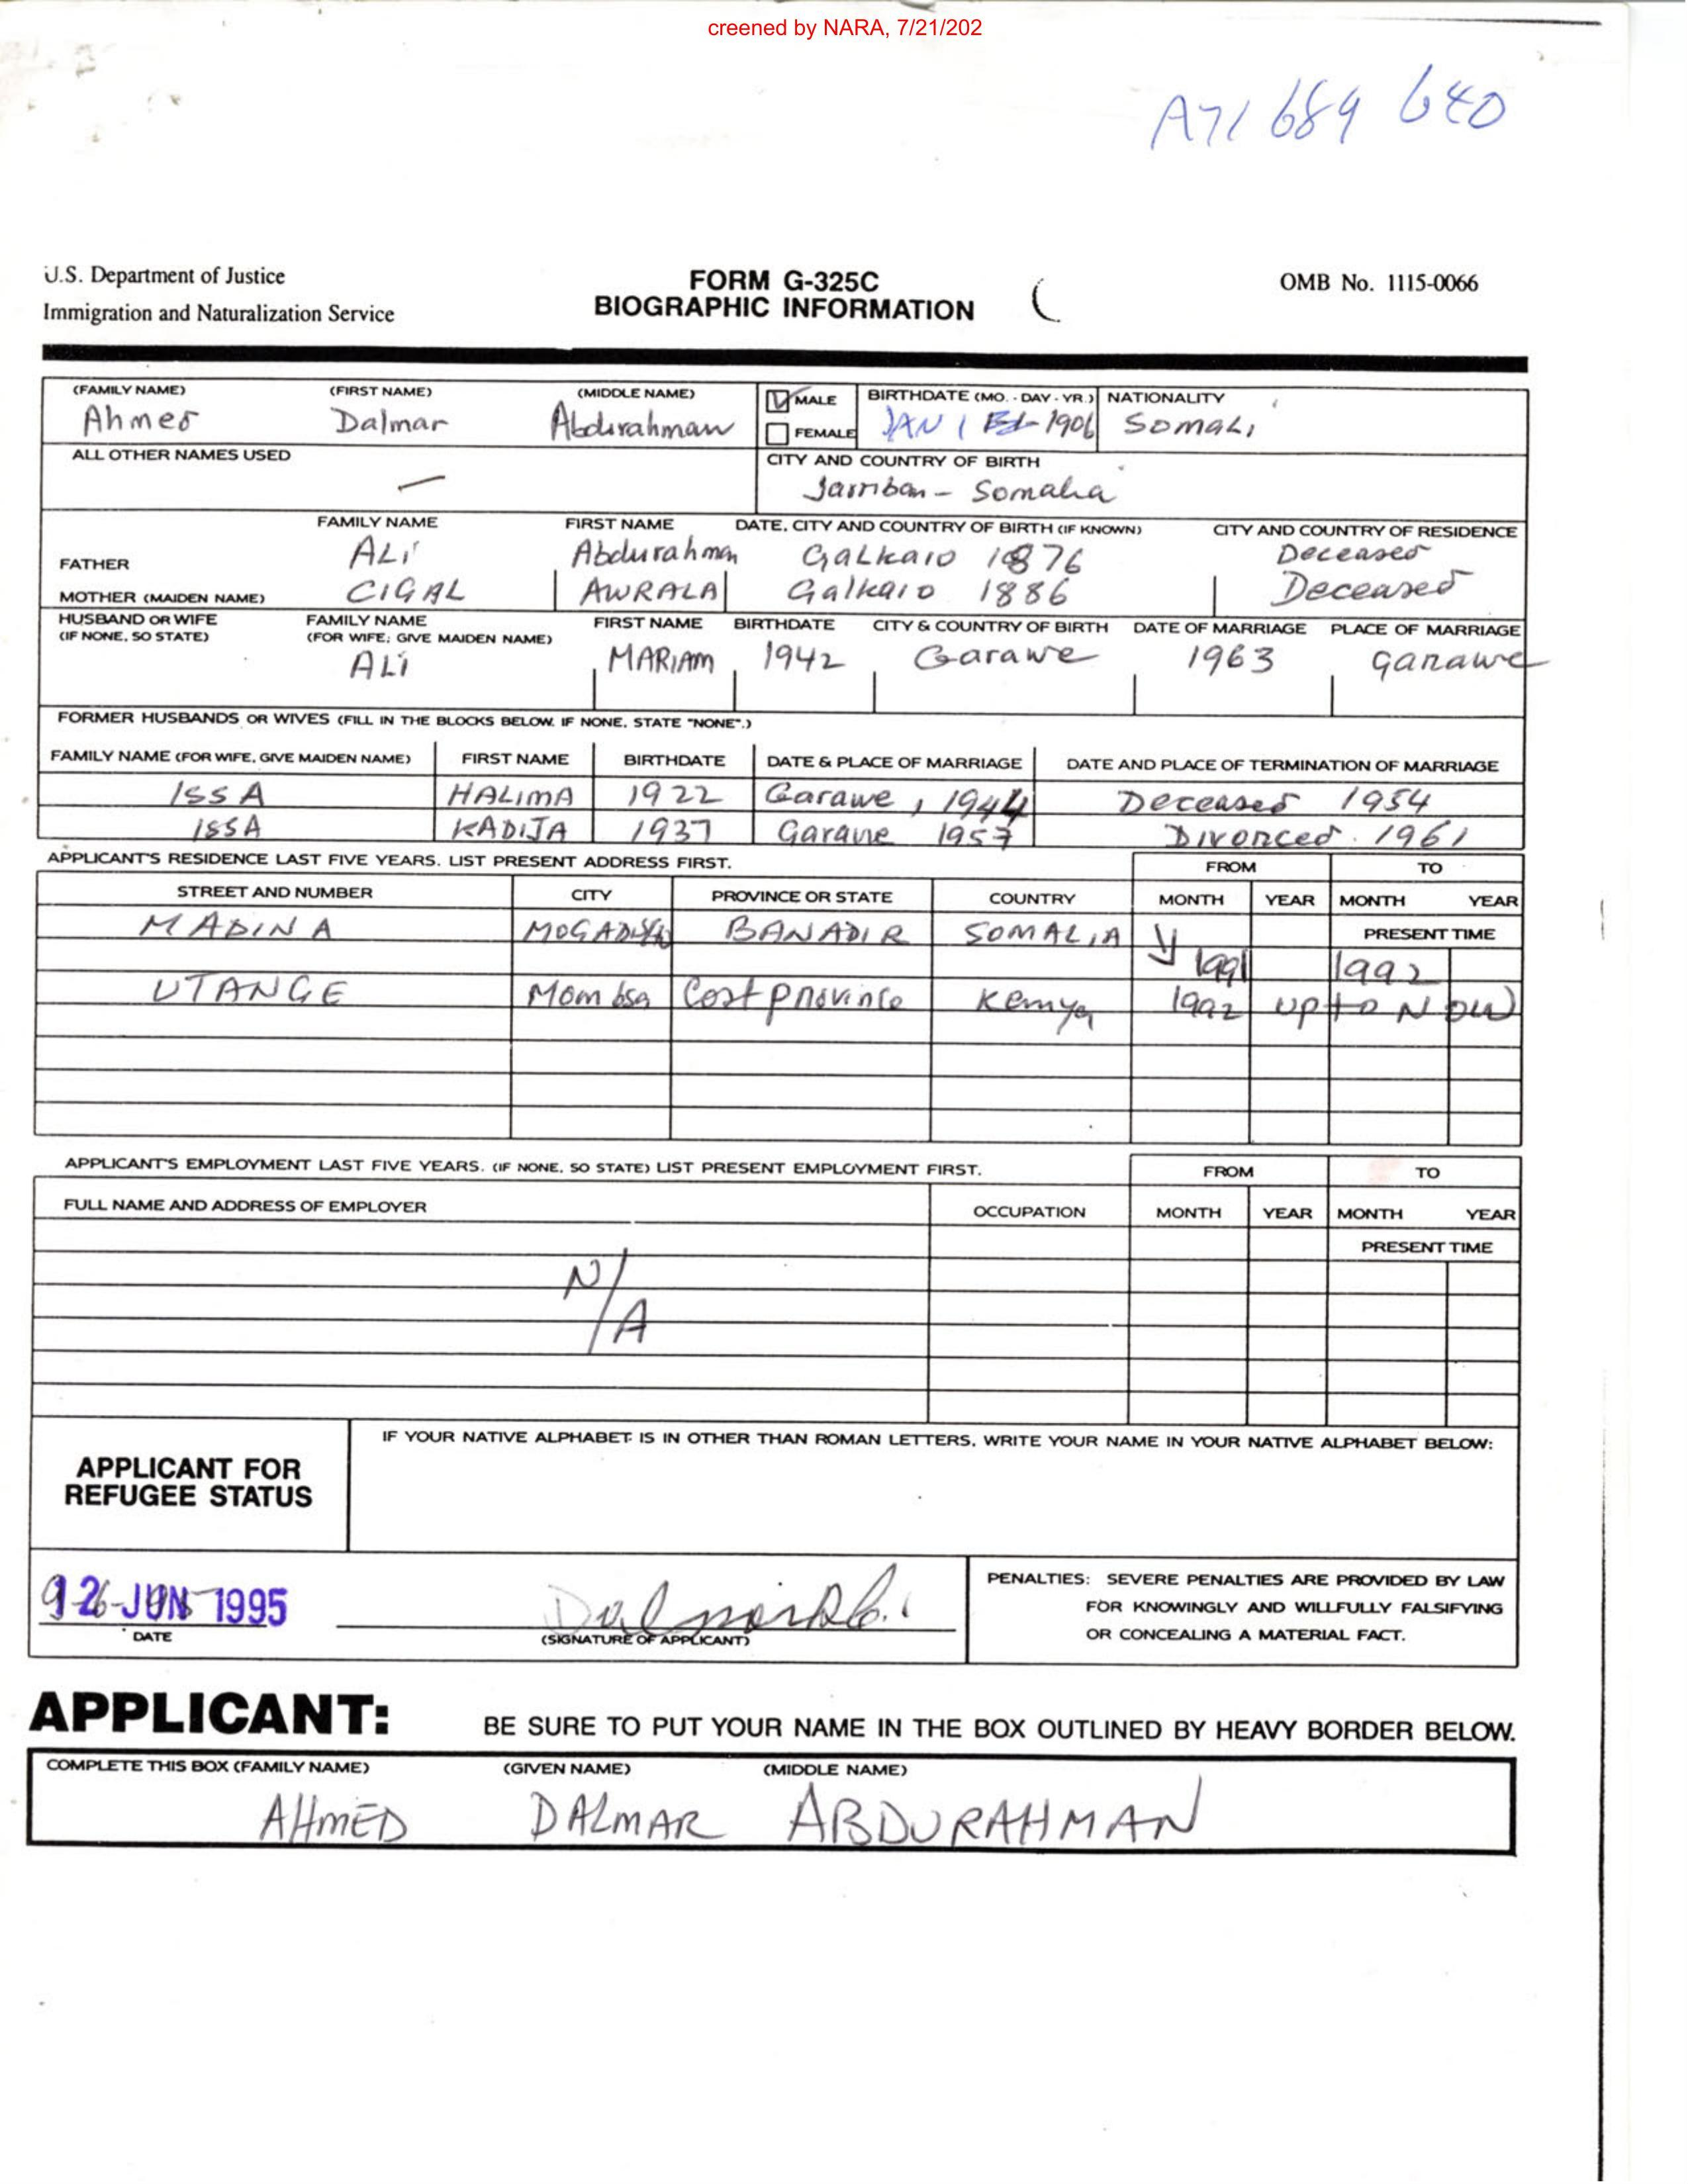 creened by NARA, 7/21/202
A71 689 640
U.S. Department of Justice
Immigration and Naturalization Service
FORM G-325C
BIOGRAPHIC INFORMATION
OMB No. 1115-0066
(FAMILY NAME) (FIRST NAME) (MIDDLE NAME) MALE BIRTHDATE (MO. - DAY - YR.) NATIONALITY
Ahmed Dalmar Abdurahman FEMALE JAN 1 1906 SOMALI
ALL OTHER NAMES USED CITY AND COUNTRY OF BIRTH
— Jarriban - Somalia
FAMILY NAME FIRST NAME DATE, CITY AND COUNTRY OF BIRTH (IF KNOWN) CITY AND COUNTRY OF RESIDENCE
FATHER ALI Abdurahman GALKAIO 1876 Deceased
MOTHER (MAIDEN NAME) CIGAL AWRALA Galkaio 1886 Deceased
HUSBAND OR WIFE FAMILY NAME FIRST NAME BIRTHDATE CITY & COUNTRY OF BIRTH DATE OF MARRIAGE PLACE OF MARRIAGE
(IF NONE, SO STATE) (FOR WIFE, GIVE MAIDEN NAME)
ALI MARIAM 1942 Garawe 1963 garawe
FORMER HUSBANDS OR WIVES (FILL IN THE BLOCKS BELOW. IF NONE, STATE "NONE".)
FAMILY NAME (FOR WIFE, GIVE MAIDEN NAME) FIRST NAME BIRTHDATE DATE & PLACE OF MARRIAGE DATE AND PLACE OF TERMINATION OF MARRIAGE
ISSA HALIMA 1922 Garawe, 1944 Deceased 1954
ISSA KADIJA 1937 Garawe 1957 Divorced 1961
APPLICANT'S RESIDENCE LAST FIVE YEARS. LIST PRESENT ADDRESS FIRST. FROM TO
STREET AND NUMBER CITY PROVINCE OR STATE COUNTRY MONTH YEAR MONTH YEAR
MADINA BANADIR SOMALIA PRESENT TIME
1991 1992
UTANGE Mombsa Cost province Kenya 1992 up to NOW
APPLICANT'S EMPLOYMENT LAST FIVE YEARS. (IF NONE, SO STATE) LIST PRESENT EMPLOYMENT FIRST. FROM TO
FULL NAME AND ADDRESS OF EMPLOYER OCCUPATION MONTH YEAR MONTH YEAR
PRESENT TIME
N/A
IF YOUR NATIVE ALPHABET IS IN OTHER THAN ROMAN LETTERS, WRITE YOUR NAME IN YOUR NATIVE ALPHABET BELOW:
APPLICANT FOR
REFUGEE STATUS
PENALTIES: SEVERE PENALTIES ARE PROVIDED BY LAW
FOR KNOWINGLY AND WILLFULLY FALSIFYING
OR CONCEALING A MATERIAL FACT.
JUN 1995
DATE
(SIGNATURE OF APPLICANT)
APPLICANT: BE SURE TO PUT YOUR NAME IN THE BOX OUTLINED BY HEAVY BORDER BELOW.
COMPLETE THIS BOX (FAMILY NAME) (GIVEN NAME) (MIDDLE NAME)
AHMED DALMAR ABDURAHMAN